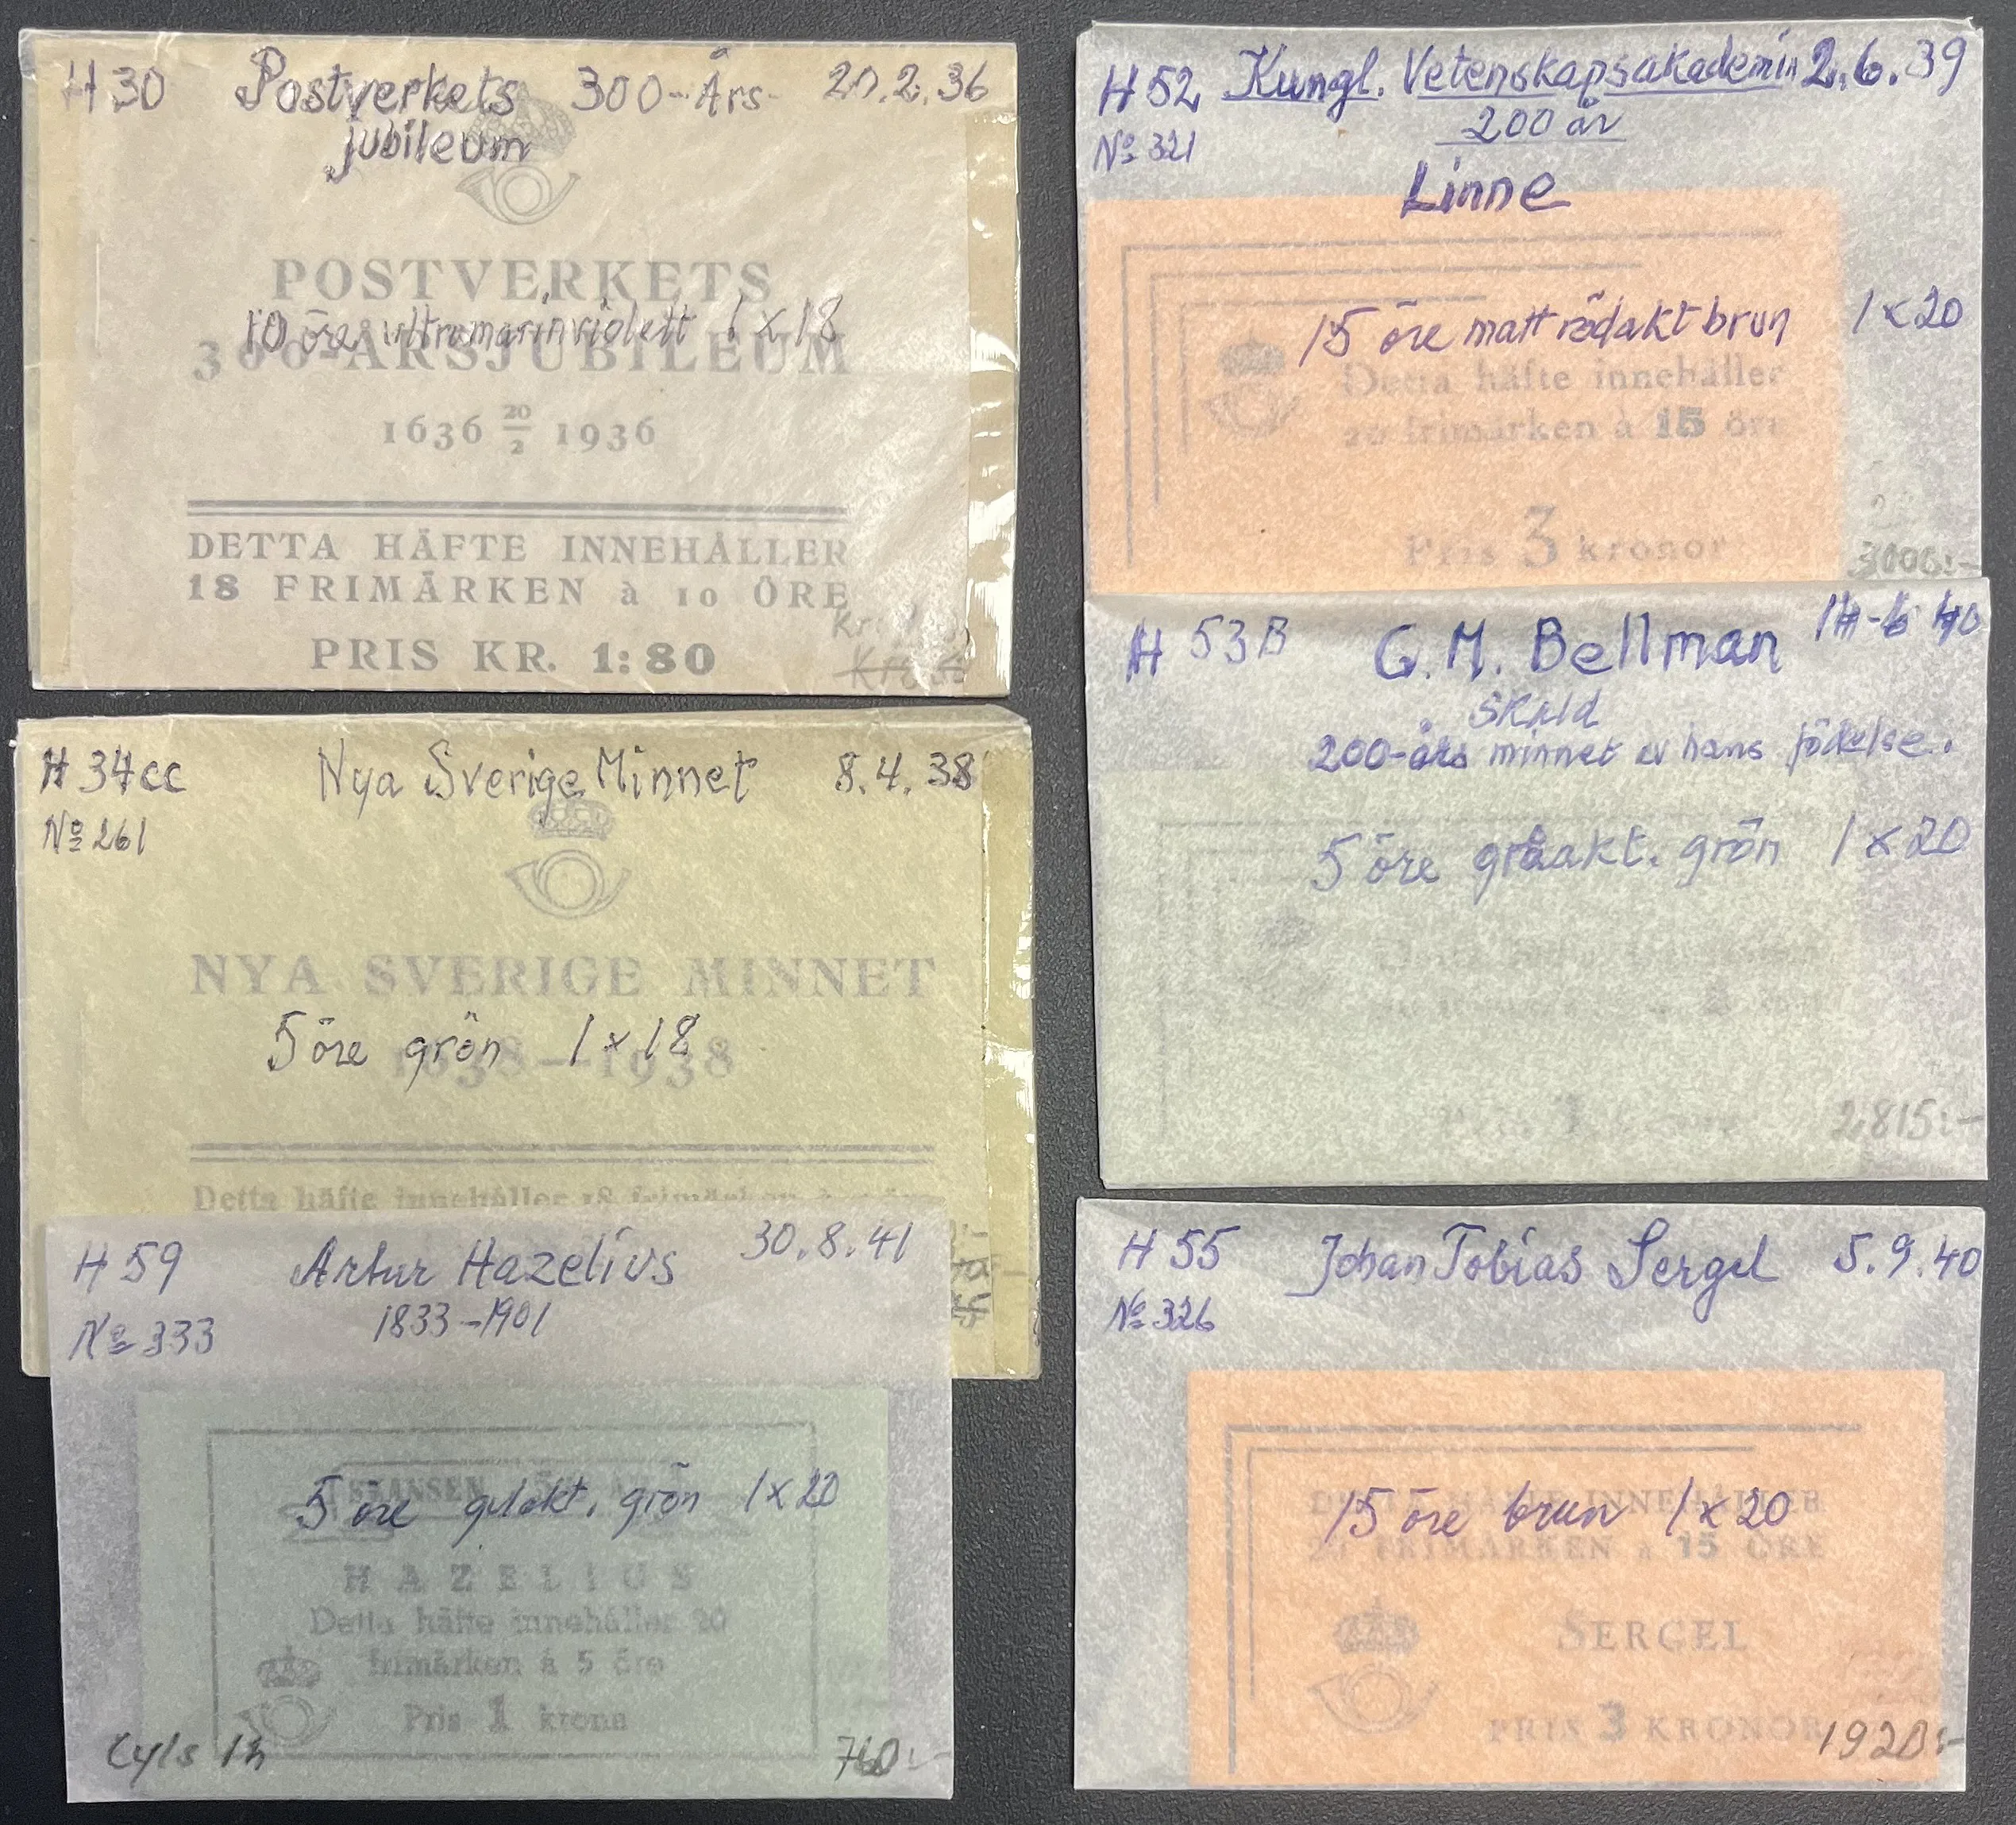 H 30 Postverkets 300-Års- 20.2.36
jubileum
POSTVERKETS
10 öre ultramarinviolett 1 x 18
300-ÅRSJUBILEUM
1636 20/2 1936
DETTA HÄFTE INNEHÅLLER
18 FRIMÄRKEN à 10 ÖRE
Kr:
PRIS KR. 1:80
H 34cc Nya Sverige Minnet 8.4.38
No 261
NYA SVERIGE MINNET
5 öre grön 1 x 18
1638—1938
Detta häfte innehåller 18 frimärken
H 59 Artur Hazelius 30.8.41
No 333 1833-1901
5 öre gulakt. grön 1 x 20
HAZELIUS
Detta häfte innehåller 20
frimärken à 5 öre
Pris 1 krona
Cyls 760:-
H 52 Kungl. Vetenskapsakademin 2.6.39
200 år
No 321
Linne
15 öre matt rödakt brun 1 x 20
Detta häfte innehåller
20 frimärken à 15 öre
Pris 3 kronor
3000:-
H 53B C.M. Bellman
Skald
200-års minnet av hans födelse.
5 öre gråakt. grön 1 x 20
2815:-
H 55 Johan Tobias Sergel 5.9.40
No 326
DETTA HÄFTE INNEHÅLLER
15 öre brun 1 x 20
20 FRIMÄRKEN à 15 ÖRE
SERGEL
PRIS 3 KRONOR
1920:-